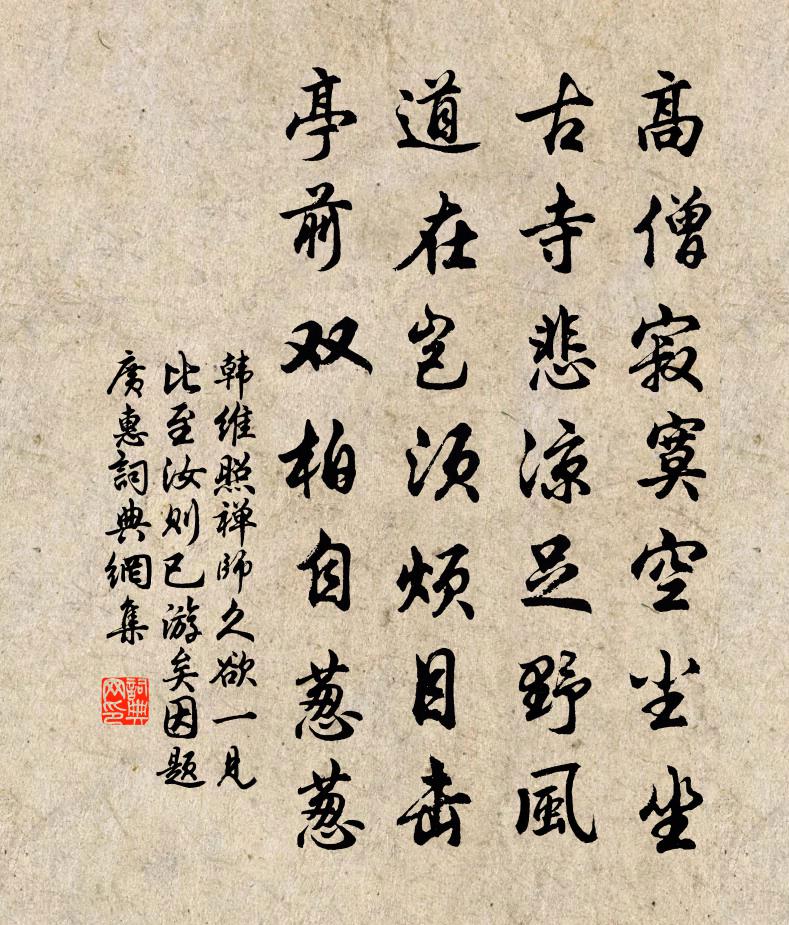 高僧寂寞空尘坐
古寺悲凉足野風
道在岂须烦目击
亭前双柏自葱葱
韩维照禅师久欲一见
比至汝则已游矣因题
廣惠詞典網集
詞典网印